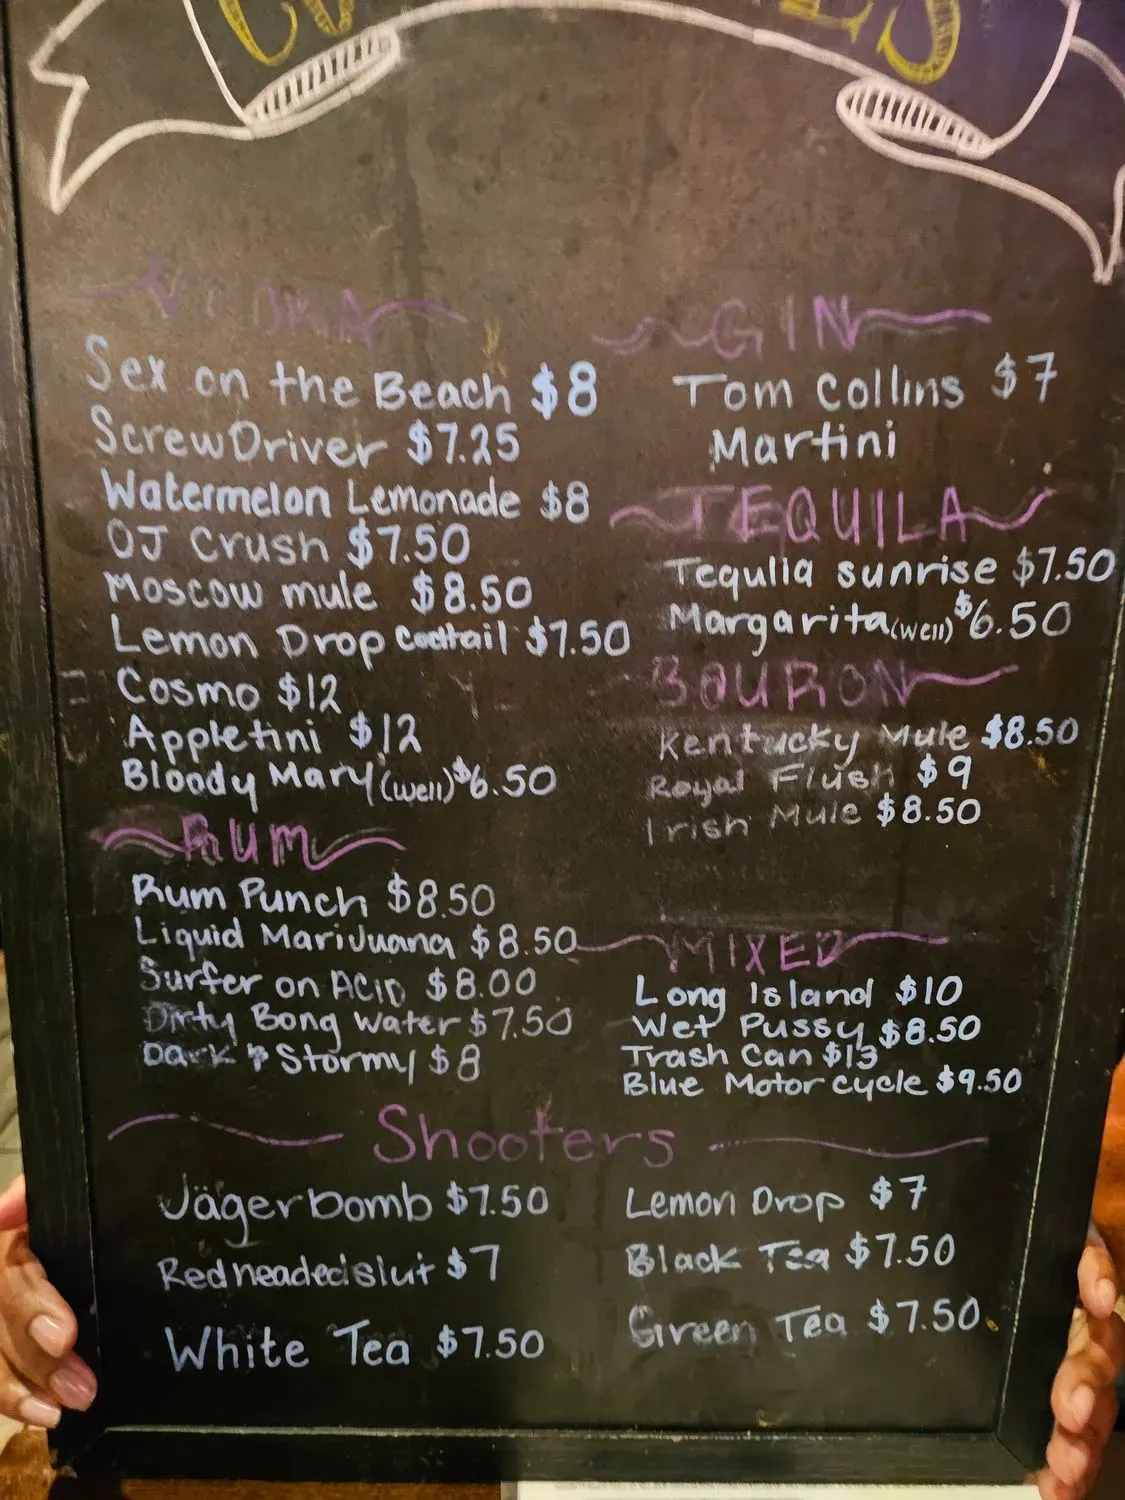 VODKA
Sex on the Beach $8
ScrewDriver $7.25
Watermelon Lemonade $8
OJ Crush $7.50
Moscow mule $8.50
Lemon Drop Cocktail $7.50
Cosmo $12
Appletini $12
Bloody Mary (well) $6.50
RUM
Rum Punch $8.50
Liquid Marijuana $8.50
Surfer on ACID $8.00
Dirty Bong water $7.50
Dark & Stormy $8
GIN
Tom Collins $7
Martini
TEQUILA
Tequlia sunrise $7.50
Margarita (well) $6.50
BOURON
Kentucky Mule $8.50
Royal Flush $9
Irish Mule $8.50
MIXED
Long Island $10
Wet Pussy $8.50
Trash Can $13
Blue Motorcycle $9.50
Shooters
Jägerbomb $7.50
Redheadedslut $7
White Tea $7.50
Lemon Drop $7
Black Tea $7.50
Green Tea $7.50